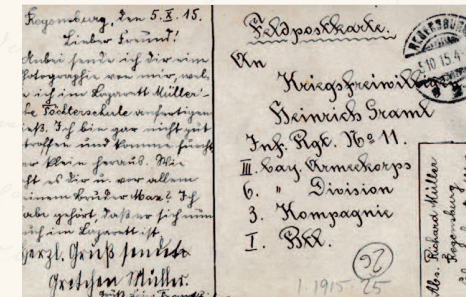 Regensburg, den 5.X.15.
Lieber Freund!
Anbei sende ich dir eine
Photographie von mir, wel-
e ich im Lazarett Müller-
Töchterschule anfertigen
ieß. Ich bin gar nicht gut
troffen und komme fürcht
er klein heraus. Wie
ht es dir u. vor allem
einem Bruder Max? Ich
abe gehört, daß er sich nun
uch im Lazarett ist.
Herzl. Gruß sendet
Gretchen Müller.
Feldpostkarte.
An
Kriegsfreiwillig
Heinrich Graml
Inf. Rgt. No 11.
III. bay. Armeekorps
6. " Division
3. Kompagnie
I. Btl.
26
1.1915.25
REGENSBURG
5.10.15.4
Abs. Richard Müller
Regensburg